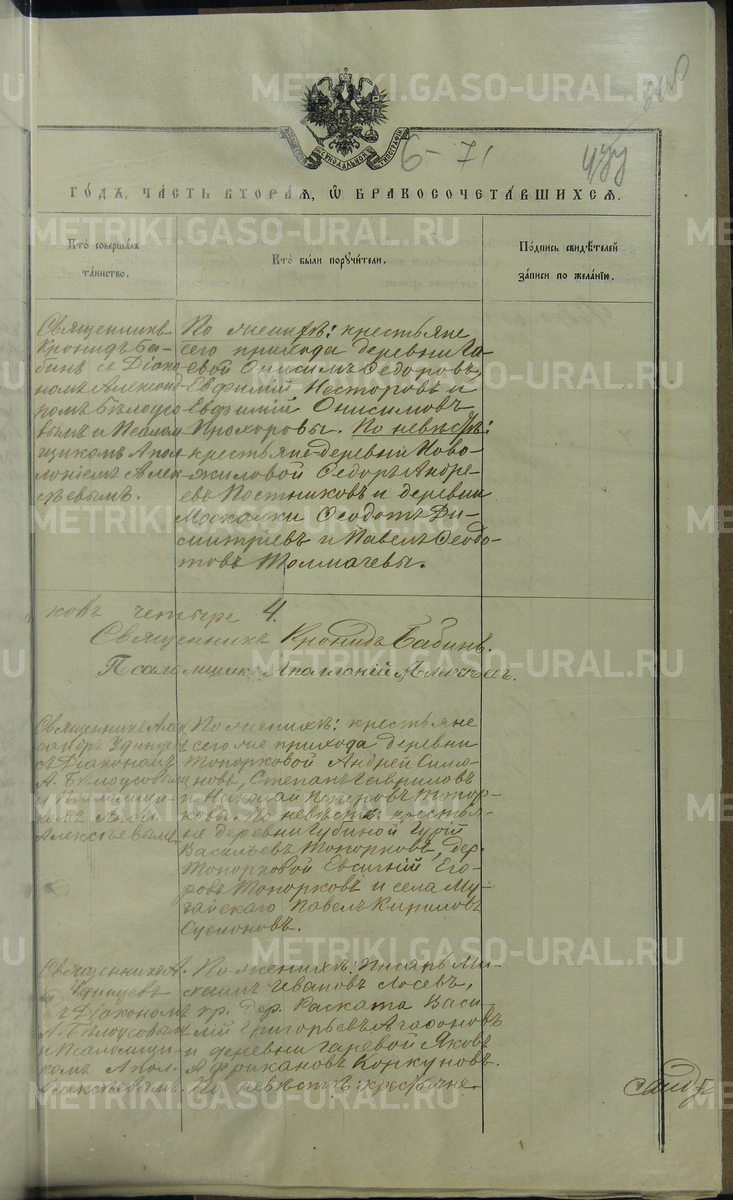 6-71
477
ГОДЪ, ЧАСТЬ ВТОРАЯ, Ѡ БРАКОСОЧЕТАВШИХСЯ.
Кто совершалъ таинство.
Кто были поручители.
Подпись свидѣтелей записи по желанію.
Священникъ
Кронидъ Ба-
бинъ съ Діако-
номъ Алексан-
ромъ Бѣлоусо-
вымъ и Псалом
щикомъ Апол-
лоніемъ Алек-
сѣевымъ.
По женихѣ: крестьяне
сего прихода деревни Га-
евой Онисимъ Ѳедоровъ,
Евфимій Несторовъ и
Евфимій Онисимовъ
Прохоровы. По невѣстѣ:
крестьяне деревни Ново-
жиловой Ѳедоръ Андре-
евъ Постниковъ и деревни
Москалки Ѳеодотъ Ди-
митріевъ и Павелъ Ѳеодо-
товъ Толмачевы.
ковъ четыре 4.
Священникъ Кронидъ Бабинъ.
Псаломщикъ Аполлоній Алексѣевъ.
Священникъ Алек
съ Діакономъ
А. Бѣлоусовымъ
и Псаломщи-
комъ Апол.
Алексѣевымъ
По женихѣ: крестьяне
сего же прихода деревни
Топорковой Андрей Симо-
новъ, Степанъ Гавриловъ
и Николай Петровъ Топор-
ковы. По невѣстѣ: крестья-
не деревни Губиной Гурій
Васильевъ Топорковъ, дер.
Топорковой Евсигній Его-
ровъ Топорковъ и села Му-
гайскаго Павелъ Кириловъ
Сусловъ.
Священникъ А.
Удинцевъ
съ Діакономъ
А. Бѣлоусовымъ
и Псаломщи-
комъ Апол.
Алексѣевымъ.
По женихѣ: писарь Ми-
хаилъ Ивановъ Лосевъ,
кр. дер. Раската Васи-
лій Григорьевъ Агафоновъ
и деревни Гаревой Яковъ
Африкановъ Коркуновъ.
По невѣстѣ: крестьяне
METRIKI.GASO-URAL.RU